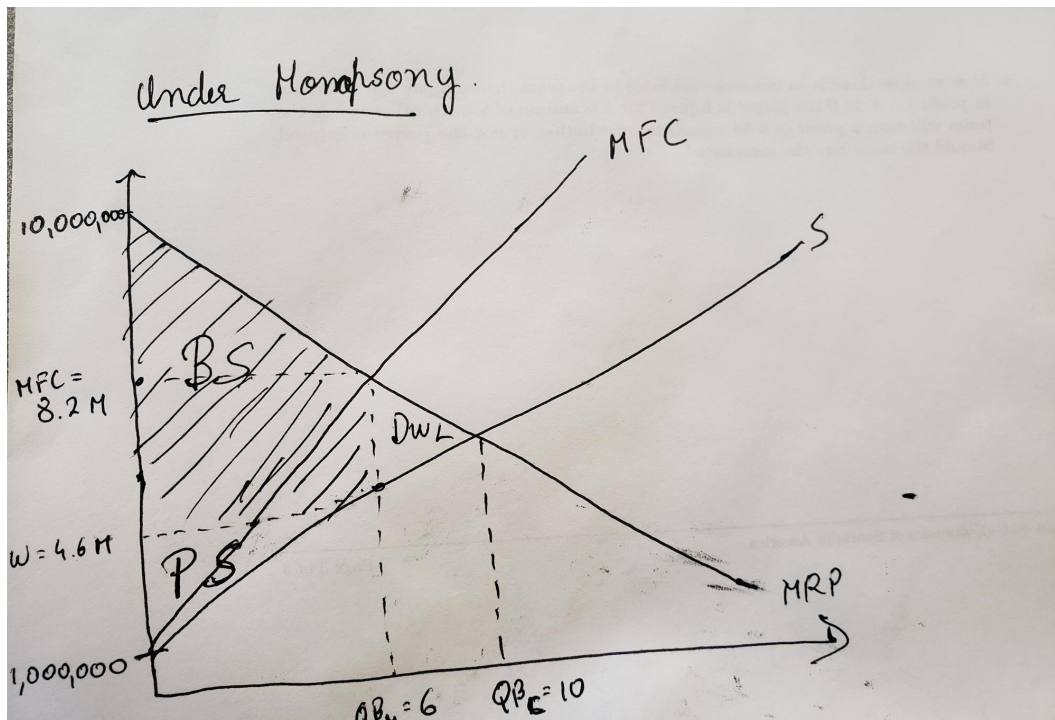 Under Monopsony.
MFC
S
10,000,000
BS
MFC =
8.2 M
DWL
W = 4.6 M
PS
MRP
1,000,000
= 6
= 10